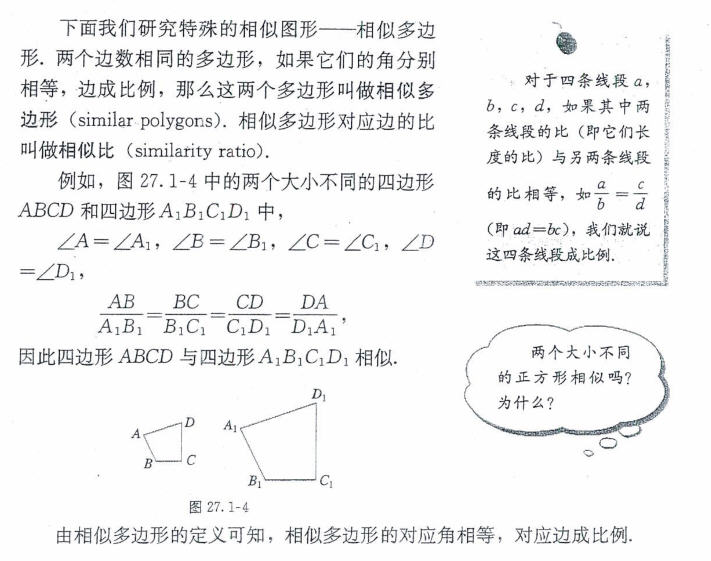 下面我们研究特殊的相似图形——相似多边
形. 两个边数相同的多边形，如果它们的角分别
相等，边成比例，那么这两个多边形叫做相似多
边形（similar polygons）. 相似多边形对应边的比
叫做相似比（similarity ratio）.
例如，图 27.1-4 中的两个大小不同的四边形
ABCD 和四边形 A₁B₁C₁D₁ 中，
∠A=∠A₁，∠B=∠B₁，∠C=∠C₁，∠D
=∠D₁，
AB/A₁B₁=BC/B₁C₁=CD/C₁D₁=DA/D₁A₁，
因此四边形 ABCD 与四边形 A₁B₁C₁D₁ 相似.
A
D
B
C
A₁
D₁
B₁
C₁
图 27.1-4
对于四条线段 a，
b，c，d，如果其中两
条线段的比（即它们长
度的比）与另两条线段
的比相等，如 a/b=c/d
（即 ad=bc），我们就说
这四条线段成比例.
两个大小不同
的正方形相似吗？
为什么？
由相似多边形的定义可知，相似多边形的对应角相等，对应边成比例.